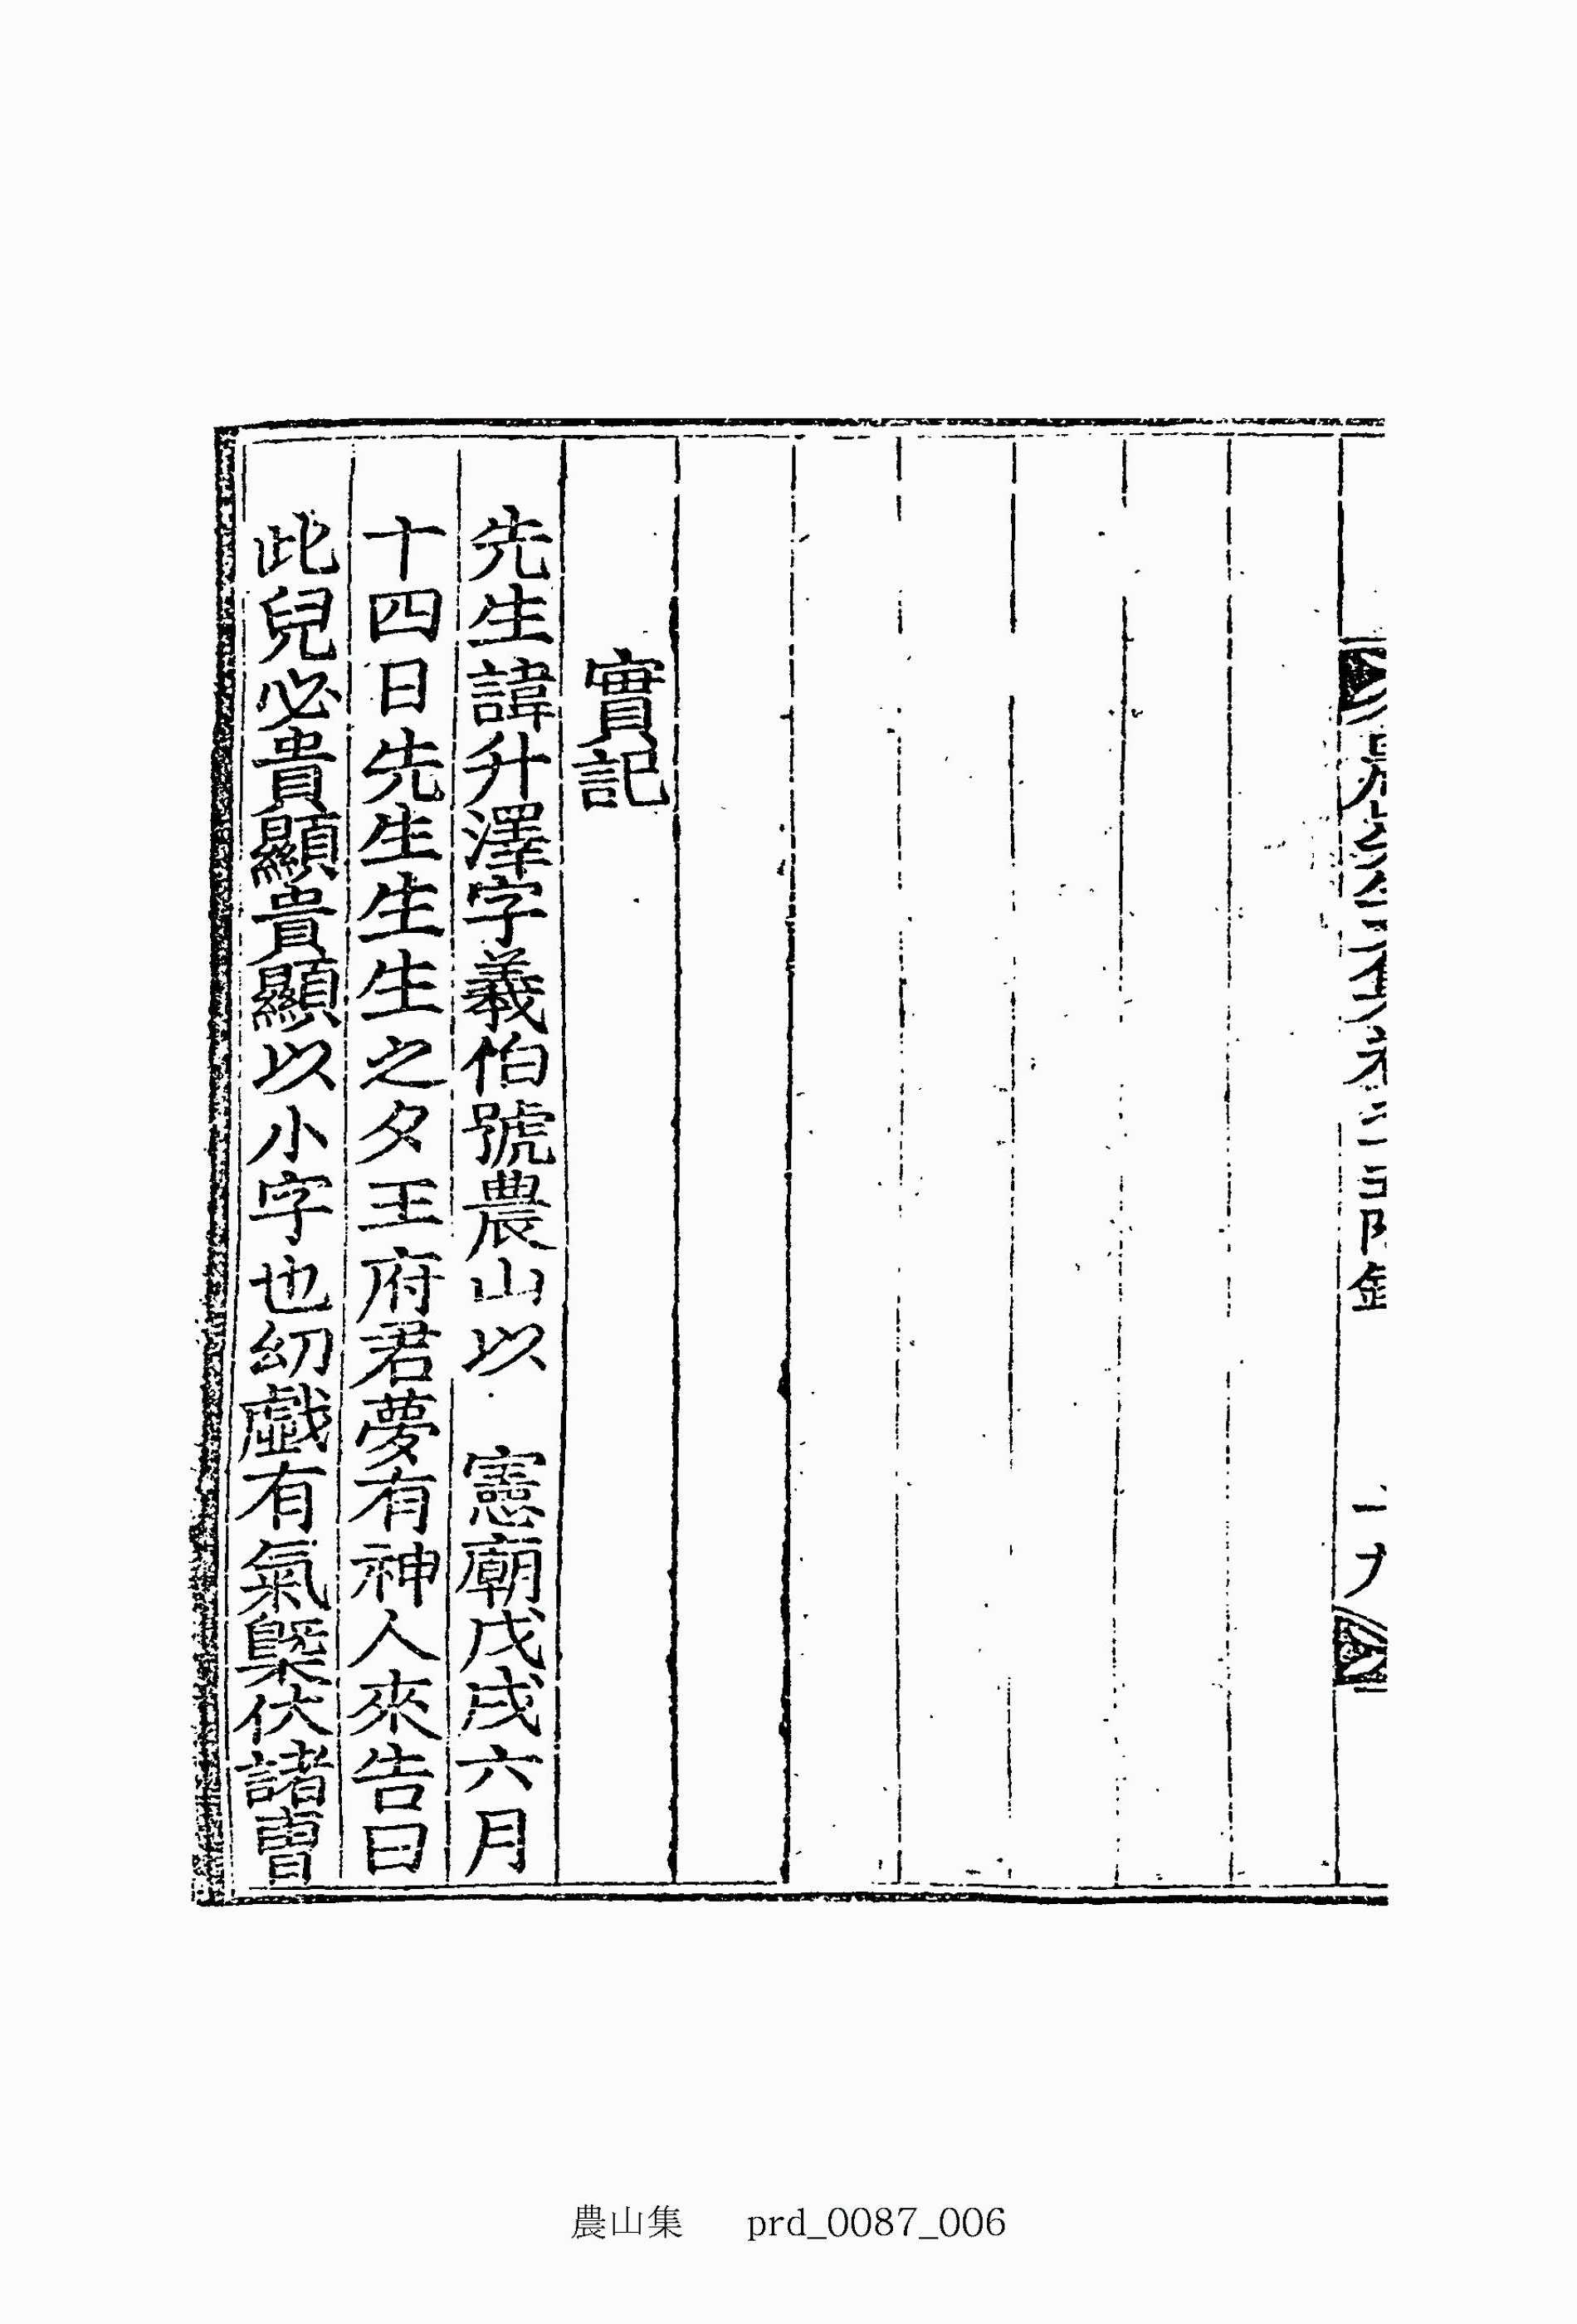 實記
先生諱升澤字羲伯號農山以 憲廟戊戌六月
十四日先生生生之夕王府君夢有神人來告曰
此兒必貴顯貴顯以小字也幼戱有氣槩伏諸曹
農山集 prd_0087_006